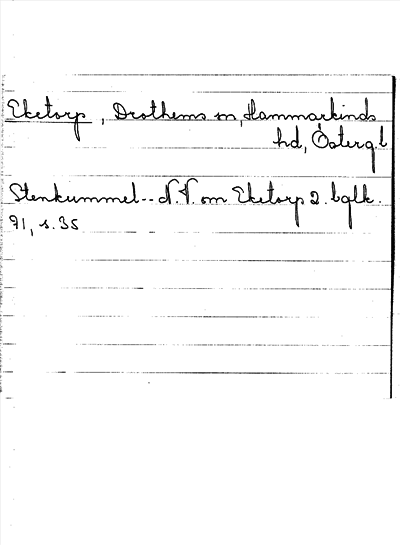 Eketorp, Drothems sn, Hammarkinds
hd, Österg.l
Stenkummel -- N.V. om Eketorp 2. bglk.
91, s. 35